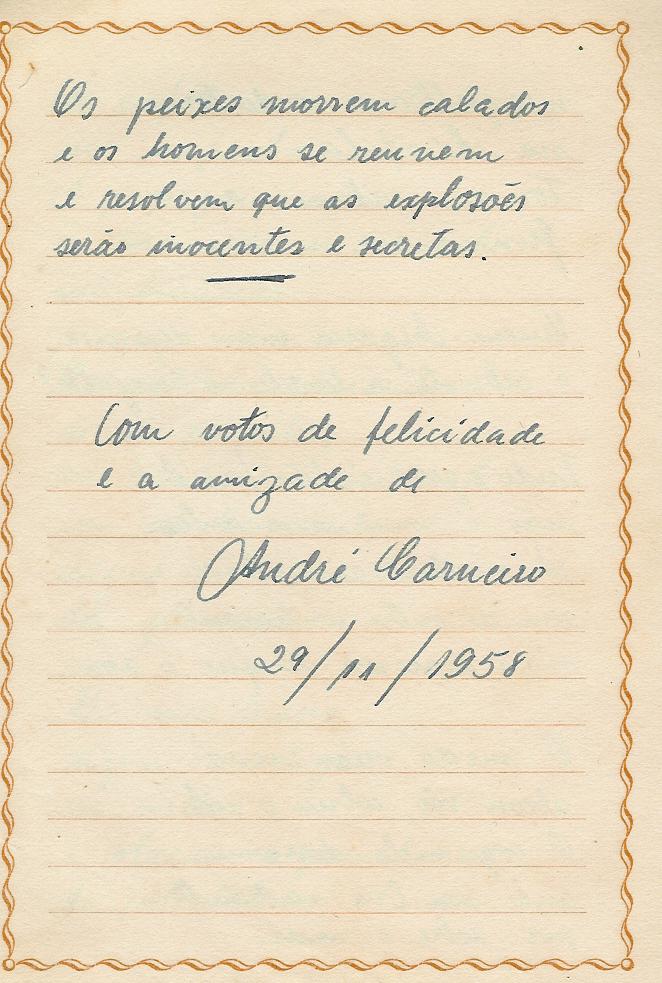 Os peixes morrem calados
e os homens se reunem
e resolvem que as explosões
serão inocentes e secretas.
Com votos de felicidade
e a amizade de
André Carneiro
29/11/1958